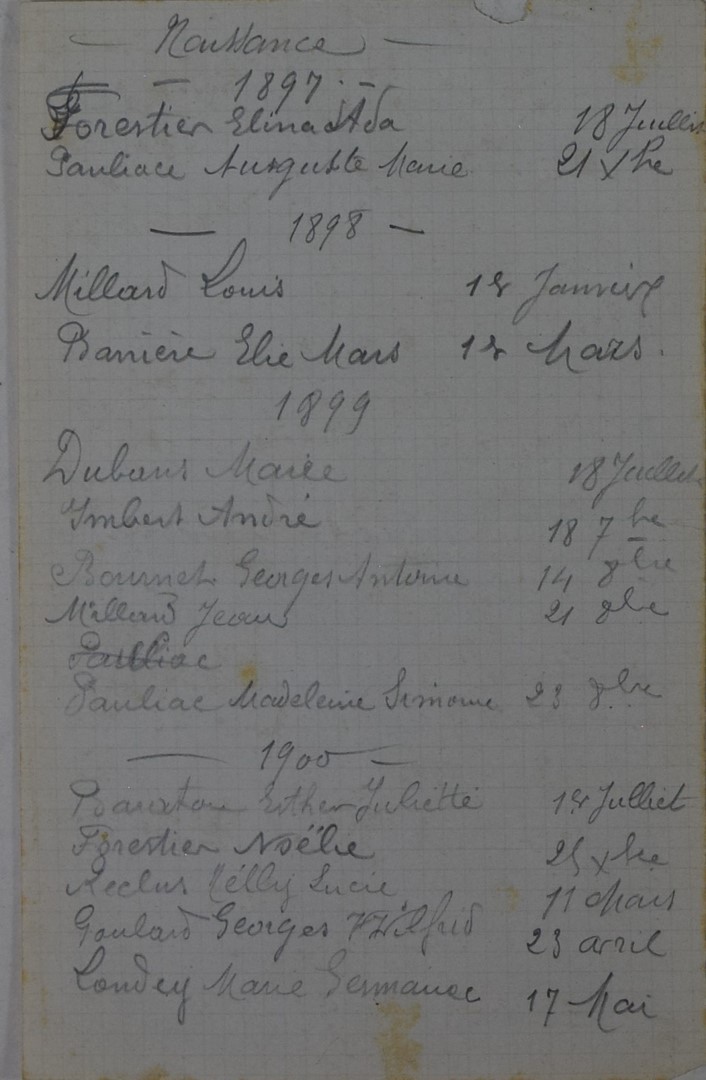 — Naissance —
— 1897 —
Forestier Elina Ada 18 Juillet
Pauliace Auguste Marie 21 Xbre
— 1898 —
Millard Louis 1er Janvier
Barrière Elie Mars 1er Mars.
1899
Dubours Marie 18 Juillet
Imbert André 18 7bre
Bournet Georges Antoine 14 8bre
Millard Jean 21 8bre
Pauliac
Pauliac Madeleine Simone 23 8bre
— 1900 —
Esther Juliette 1er Julliet
Forestier Noëlie 25 Xbre
Reclus Nélly Lucie 11 Mars
Goulard Georges Wilfrid 23 avril
Londey Marie Germaine 17 Mai